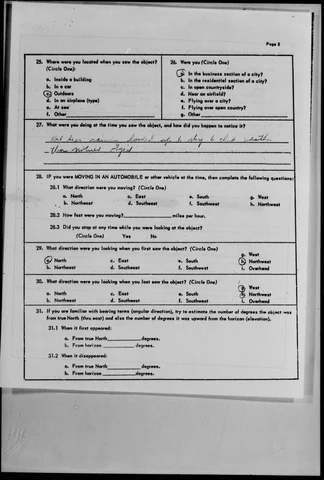 Page 3
25. Where were you located when you saw the object? (Circle One):
a. Inside a building
b. In a car
c. Outdoors
d. In an airplane (type)
e. At sea
f. Other
26. Were you (Circle One)
a. In the business section of a city?
b. In the residential section of a city?
c. In open countryside?
d. Near an airfield?
e. Flying over a city?
f. Flying over open country?
g. Other
27. What were you doing at the time you saw the object, and how did you happen to notice it?
looked up to sky to weather
noticed object
28. IF you were MOVING IN AN AUTOMOBILE or other vehicle at the time, then complete the following questions:
28.1 What direction were you moving? (Circle One)
a. North c. East e. South g. West
b. Northeast d. Southeast f. Southwest h. Northwest
28.2 How fast were you moving? miles per hour.
28.3 Did you stop at any time while you were looking at the object?
(Circle One) Yes No
29. What direction were you looking when you first saw the object? (Circle One)
a. North c. East e. South g. West
b. Northeast d. Southeast f. Southwest h. Northwest
i. Overhead
30. What direction were you looking when you last saw the object? (Circle One)
a. North c. East e. South g. West
b. Northeast d. Southeast f. Southwest h. Northwest
i. Overhead
31. If you are familiar with bearing terms (angular direction), try to estimate the number of degrees the object was
from true North (thru east) and also the number of degrees it was upward from the horizon (elevation).
31.1 When it first appeared:
a. From true North degrees.
b. From horizon degrees.
31.2 When it disappeared:
a. From true North degrees.
b. From horizon degrees.